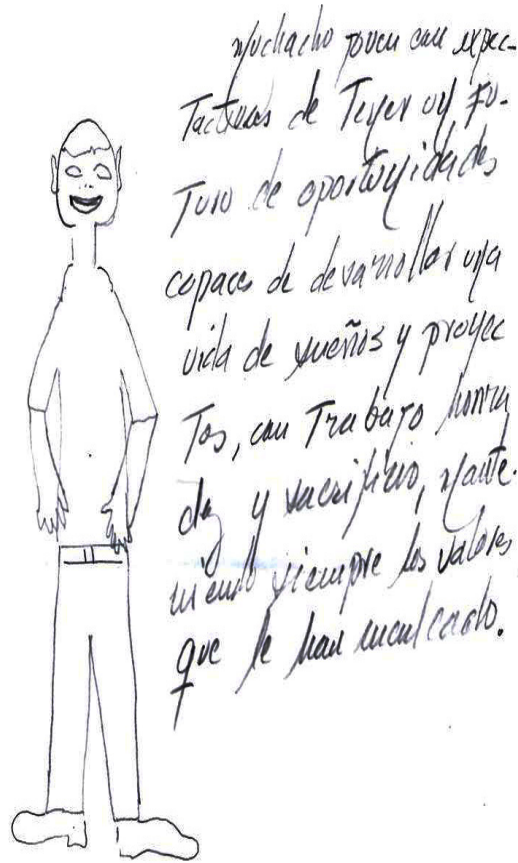 Muchacho joven con expec-
tactivas de Tener un Fu-
Turo de oportunidades
capaces de desarrollar una
vida de sueños y proyec
Tos, con Trabajo honra
dez y sacrificio, mante-
niendo siempre los valores
que le han inculcado.